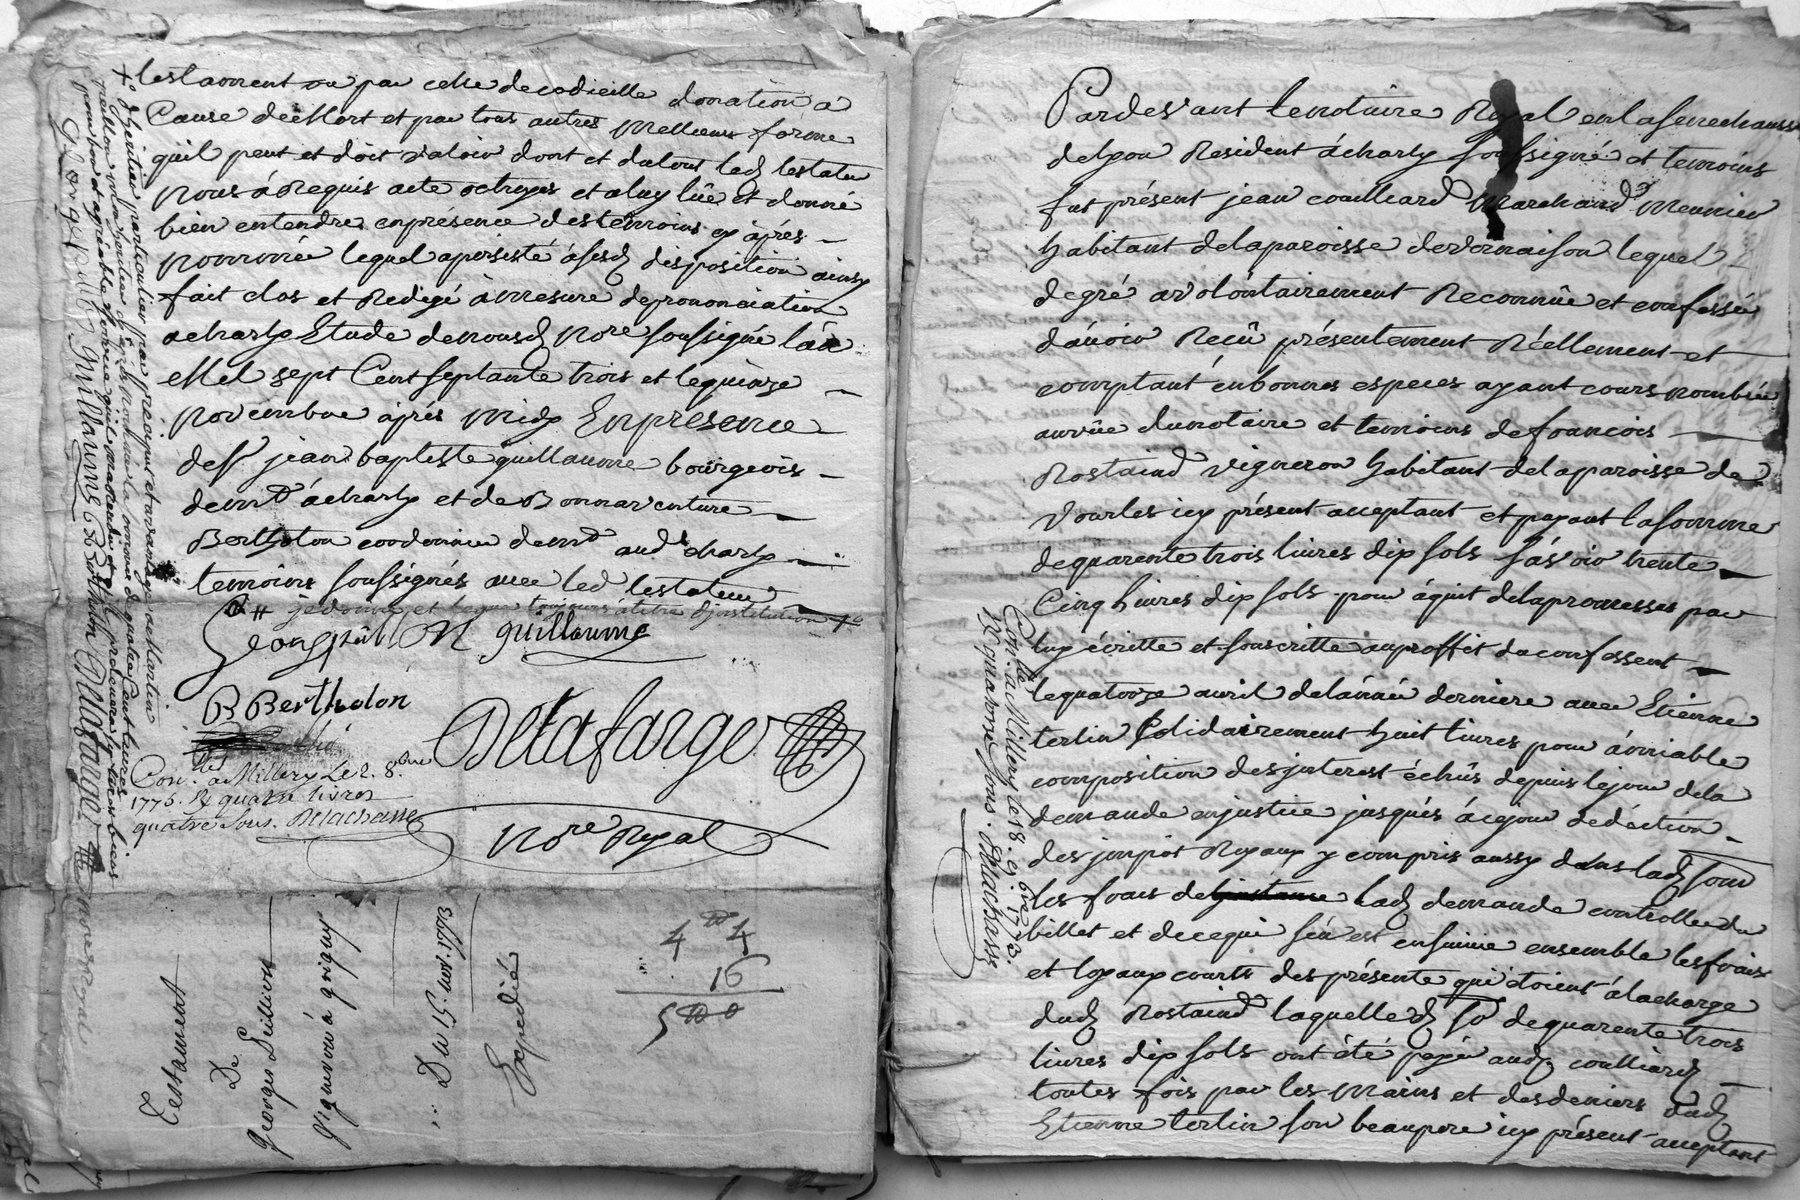 testament ou par celle de codicille donation à
Cause de Mort et par tous autres Meilleur forme
quil peut et doit valoir dont et du tout led testateur
Nous à Requis acte octroyés et a luy lûe et donné
bien entendre en présence des temoins cy àprés
nommée lequel a persisté à sesd disposition ainsy
fait clos et Redigé à mesure de prononciation
a charly Etude de nousd Nore soussigné l'an
Mil sept Cent septante trois et le quinze
Novembre àprés midy En présence
de sr jean baptiste guillaume bourgeois
demt à charly et de Bonnaventure
Berthelon cordonnier demt aud charly
temoins soussignés avec led testateur
je donne et legue toujours atitre d'institution
guillaume
B Berthelon
Delafarge
Nore Royal
Con. a Millery Le 2. 8.bre
1775. R quatre livres
quatre sous. Delachasse
d'héritier particulier par préciput et avantage a Martin
Testament
De
Georges
Vigneron à grigny
Du 15. nov. 1773
Expedié
4 4
16
5 0
Pardevant le notaire Royal en la senechaussé
de lyon Resident à charly soussigné et temoins
fut présent jean coulliard Marchand Meunier
habitant de la paroisse de vernaison lequel
de gré a volontairement Reconnûe et confessé
d'àvoir Reçû présentement Réellement et
comptant en bonnes especes ayant cours nombrée
a vûe du notaire et temoins de francois
Rostaind vigneron habitant de la paroisse de
Vourles icy présent acceptant et payant la somme
de quarente trois livres dix sols sàvoir trente
Cinq livres dix sols pour àquit de la promesses par
luy écritte et souscritte au proffit du confessent
le quatorze avril de l'année derniere avec Etienne
terlin solidairement huit livres pour àmiable
composition des jnterest échûs depuis le jour de la
demande en justice jusqués à ce jour déduction
des jmpot Royaux y compris aussy dans lad som
les frais de lad demande controlle du
billet et de ce qui s'en est ensuivie ensemble les frais
et loyaux couts des présente qui étoient à la charge
dud Rostaind laquelle d so de quarente trois
livres dix sols ont été payée aud coulliard
toutes fois par les Mains et des deniers dud
Etienne terlin son beaupere icy présent acceptant
Con.lé a Millery le 18. 9bre 1773.
R quatorze sous. Delachasse